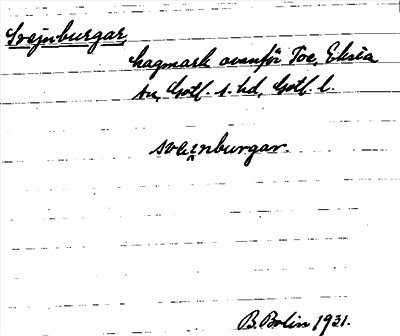 Svejnburgar
hagmark ovanför Toe, Eksta
sn, Gotl. s. hd, Gotl. l.
sveenburgar.
B. Bolin 1931.